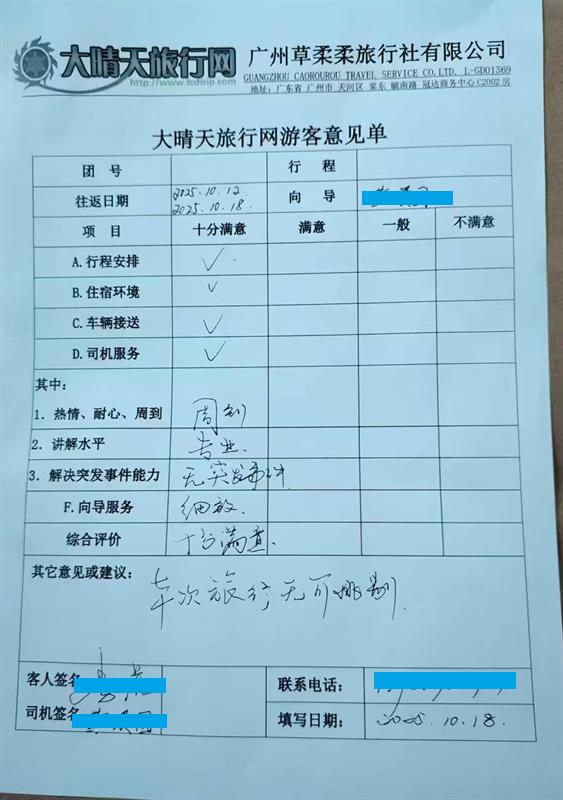 大晴天旅行网
http://www.lcdtrip.com
广州草柔柔旅行社有限公司
GUANGZHOU CAOROUROU TRAVEL SERVICE CO.LTD. L-GD01369
地址：广东省 广州市 天河区 棠东 毓南路 冠达商务中心C2002房
大晴天旅行网游客意见单
团 号 行 程
往返日期 2025.10.12 向 导
2025.10.18.
项 目 十分满意 满意 一般 不满意
A.行程安排 ✓
B.住宿环境 ✓
C.车辆接送 ✓
D.司机服务 ✓
其中：
1．热情、耐心、周到 周到
2．讲解水平 专业.
3．解决突发事件能力 无突发事件
F.向导服务 细致.
综合评价 十分满意.
其它意见或建议： 次旅行无可挑剔.
客人签名 联系电话：
司机签名 填写日期： 2025.10.18.